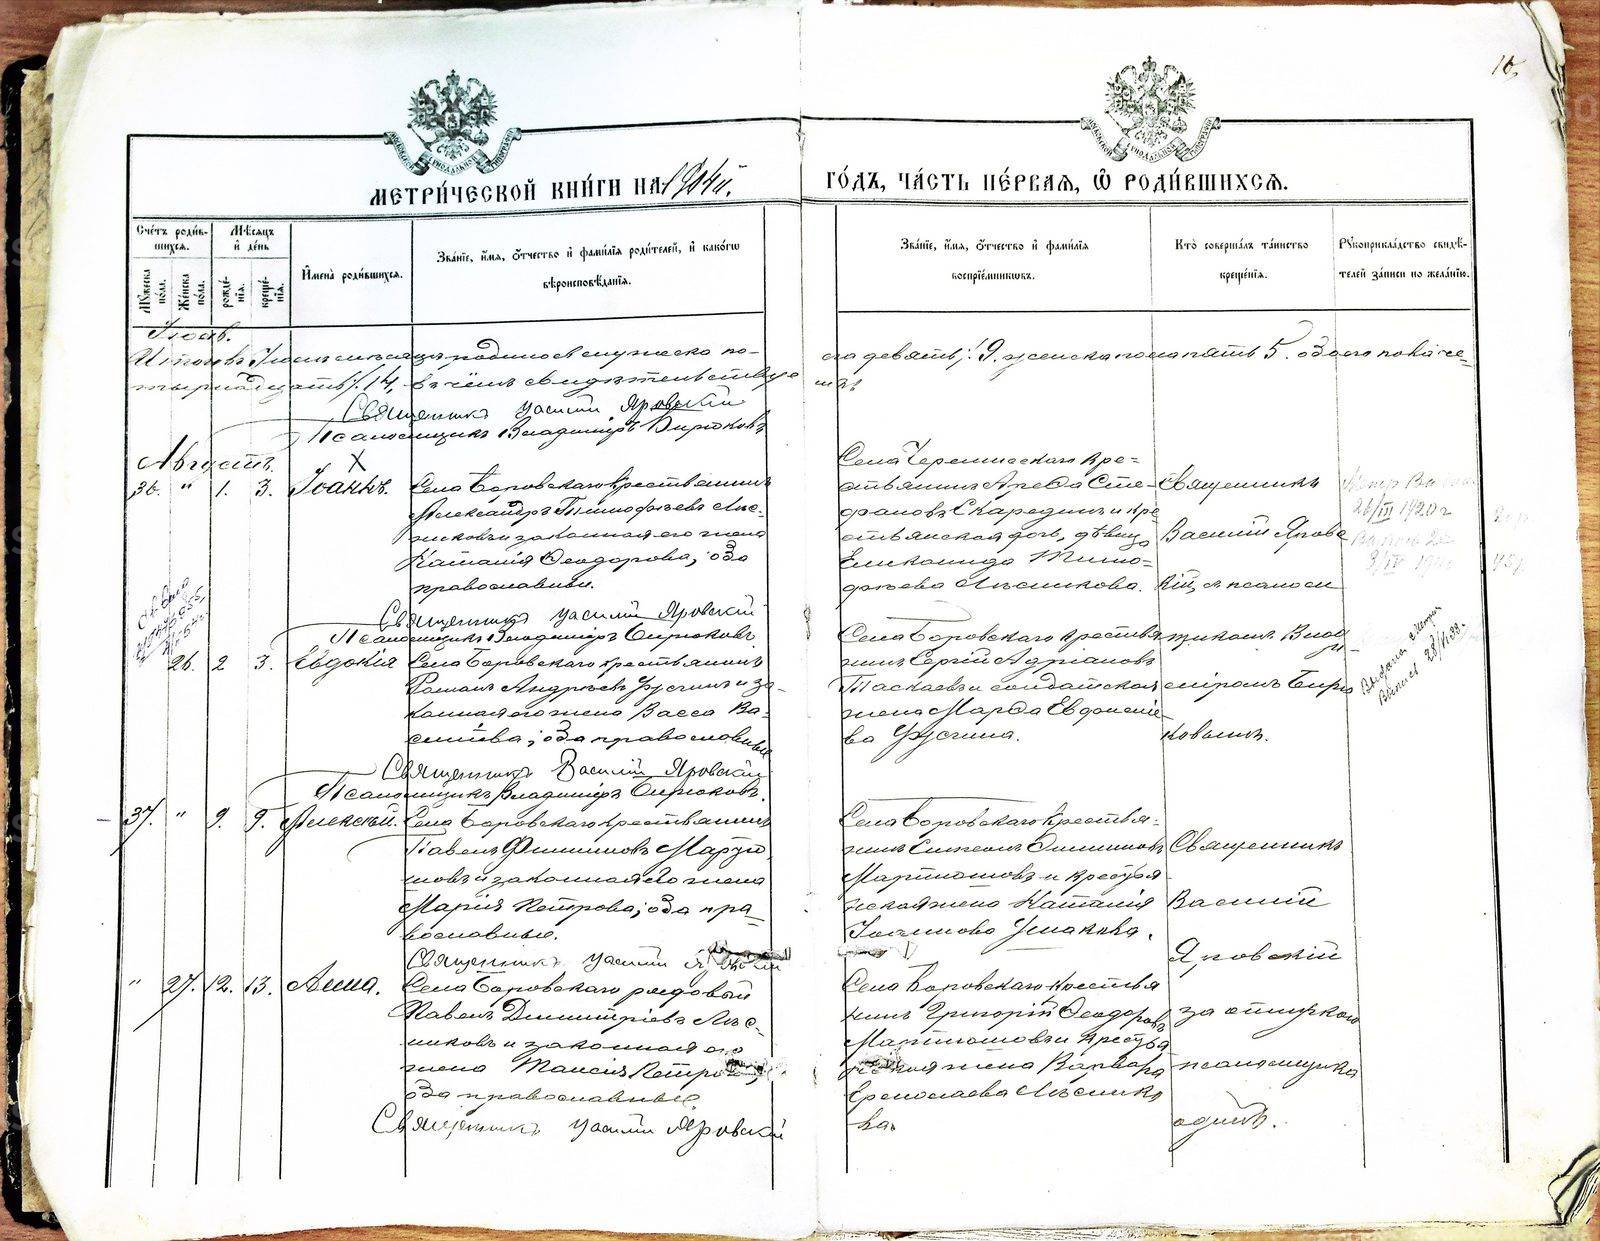 16.
МЕТРИ́ЧЕСКОЙ КНИ́ГИ НА 1904й. ГО́ДЪ, ЧА́СТЬ ПЕ́РВАЯ, Ѡ҆ РОДИ́ВШИХСЯ.
Сче́тъ роди́в-
шихся.
Му́жеска по́ла.
Же́нска по́ла.
Мѣ́сяцъ и҆ де́нь
рожде́нія.
креще́нія.
И҆мена̀ роди́вшихся.
Зва́ніе, и҆́мя, о҆́тчество и҆ фами́лія роди́телей, и҆ како́гѡ
вѣроисповѣ́данія.
Зва́ніе, и҆́мя, о҆́тчество и҆ фами́лія
воспріе́мниковъ.
Кто̀ соверша́лъ та́инство
креще́нія.
Рукоприкла́дство свидѣ́-
телей за́писи по жела́нію.
Іюль.
Итого въ Іюлѣ мѣсяцѣ родилось мужеска по-
ла девять /: 9. женска пола пять 5. обоего пола че-
тырнадцать /. 14, въ чёмъ свидѣтельствуе
мъ:
Священникъ Василій Яровскій
Псаломщикъ Владиміръ Бирюковъ
Августъ.
36. " 1. 3. Іоаннъ.
Села Боровскаго крестьянинъ
Александръ Тимофѣевъ Лѣс-
никовъ и законная его жена
Наталія Ѳеодорова, оба
православные.
Священникъ Василій Яровскій
Псаломщикъ Владиміръ Бирюковъ
Села Черемисскаго кре-
стьянинъ Сте-
фановъ Скарединъ и кре-
стьянская дочь, дѣвица
Еликонида Тимо-
фѣева Лѣсникова.
Священникъ
Василій Яров-
скій, съ псалом-
щикомъ Влади-
міромъ Бирю-
ковымъ.
26/III 1920 г
" 26. 2 3. Евдокія
Села Боровскаго крестьянинъ
Романъ Андреевъ Фусинъ и за-
конная его жена Васса Ва-
сильева, оба православные
Священникъ Василій Яровскій
Псаломщикъ Владиміръ Бирюковъ.
Села Боровскаго крестья-
нинъ Сергій Адріановъ
Таскаевъ и солдатская
жена Марѳа Евдокиме-
ва Фусина.
Выдана метрич
Выпись 28/
37. " 9. 9. Алексѣй.
Села Боровскаго крестьянинъ
Павелъ Филиповъ Мартю-
шовъ и законная его жена
Марія Петрова, оба пра-
вославные.
Священникъ Василій Яровскій
Села Боровскаго крестья-
нинъ Симеонъ Филиповъ
Мартюшовъ и крестья-
нская жена Наталія
Іоаннова Ушакова.
Священникъ
Василій
Яровскій
за отпускомъ
псаломщика
одинъ.
" 27. 12. 13. Анна.
Села Боровскаго рядовый
Павелъ Димитріевъ Лѣс-
никовъ и законная его
жена Таисія Петрова,
оба православные
Священникъ Василій Яровскій
Села Боровскаго крестья
нинъ Григорій Ѳеодоровъ
Мартюшовъ и крестья
нская жена Варвара
Ермолаева Лѣснико
ва.